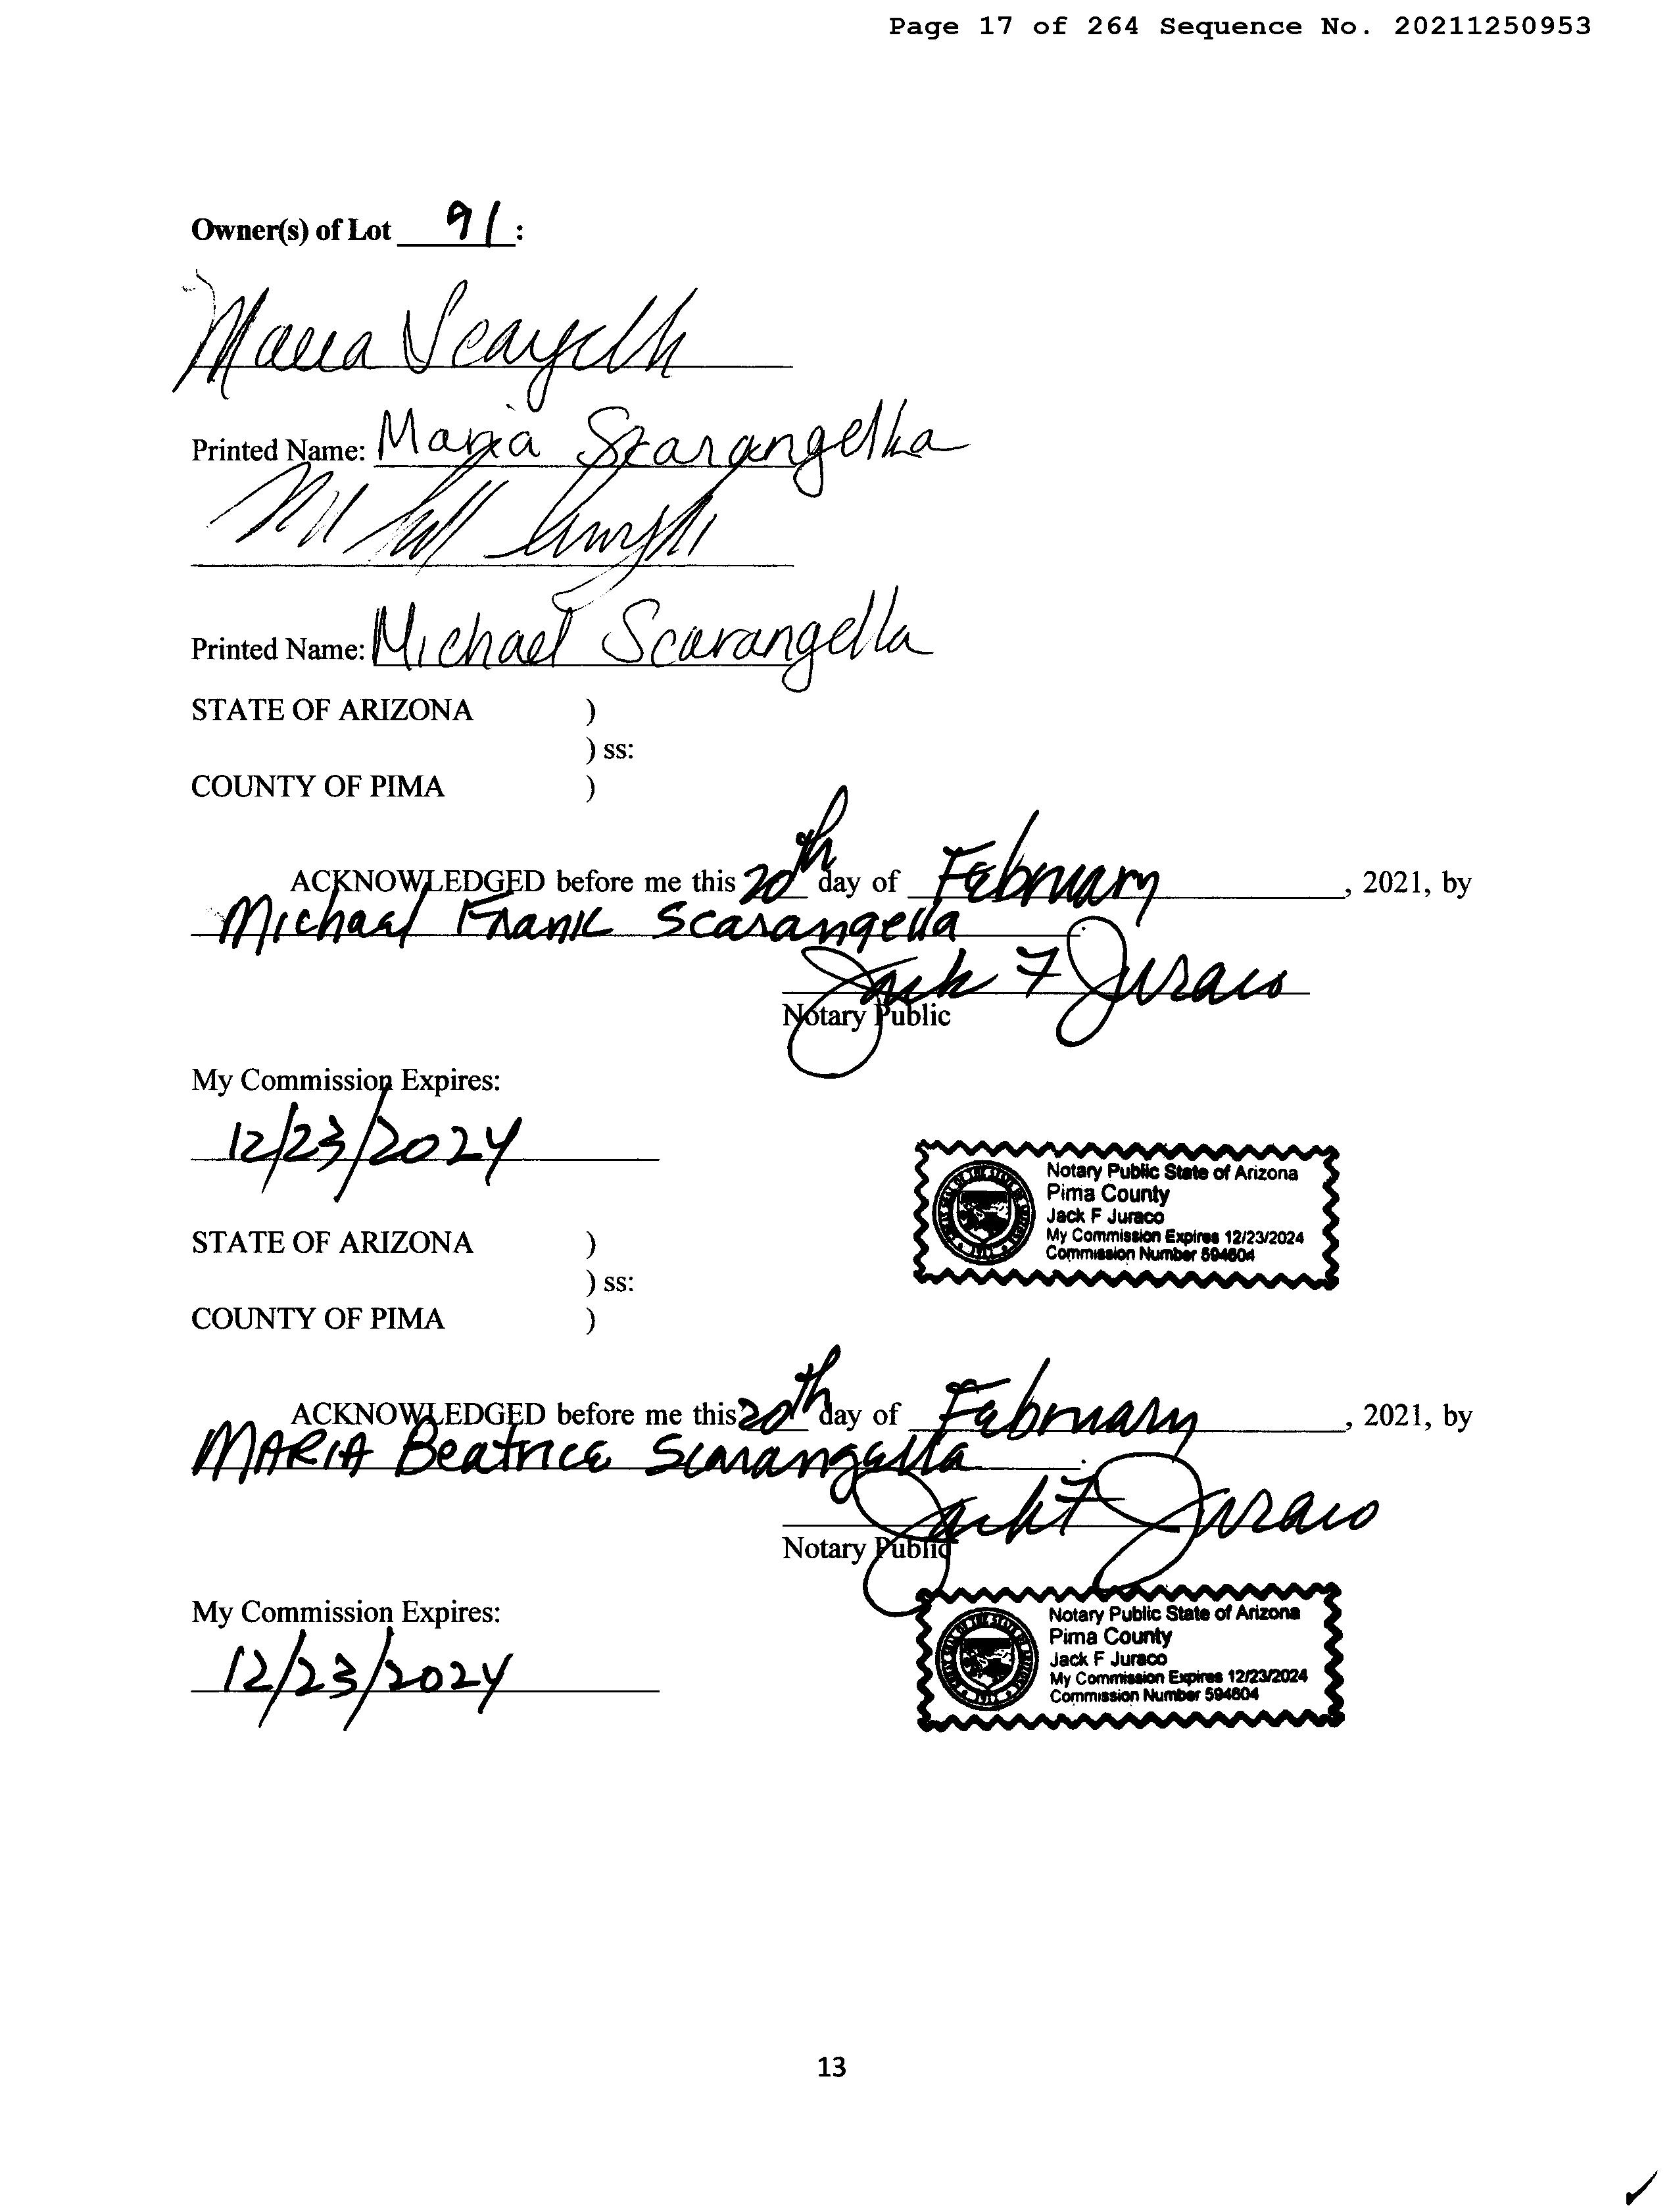 Page 17 of 264 Sequence No. 20211250953
Owner(s) of Lot 91:
Maria Scarangella
Printed Name: Maria Scarangella
Printed Name: Michael Scarangella
STATE OF ARIZONA )
) ss:
COUNTY OF PIMA )
ACKNOWLEDGED before me this 20th day of February, 2021, by
Michael Frank Scarangella
Jack F Juraco
Notary Public
My Commission Expires:
12/23/2024
Notary Public State of Arizona
Pima County
Jack F Juraco
My Commission Expires 12/23/2024
Commission Number 594604
STATE OF ARIZONA )
) ss:
COUNTY OF PIMA )
ACKNOWLEDGED before me this 20th day of February, 2021, by
MARIA Beatrice Scarangella
Jack F Juraco
Notary Public
My Commission Expires:
12/23/2024
Notary Public State of Arizona
Pima County
Jack F Juraco
My Commission Expires 12/23/2024
Commission Number 594604
13